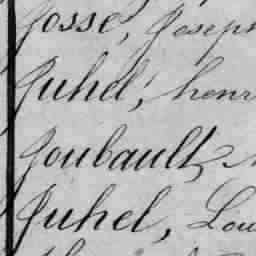 Josse, Joseph
Juhel, henr
Joubault,
Juhel, Lou